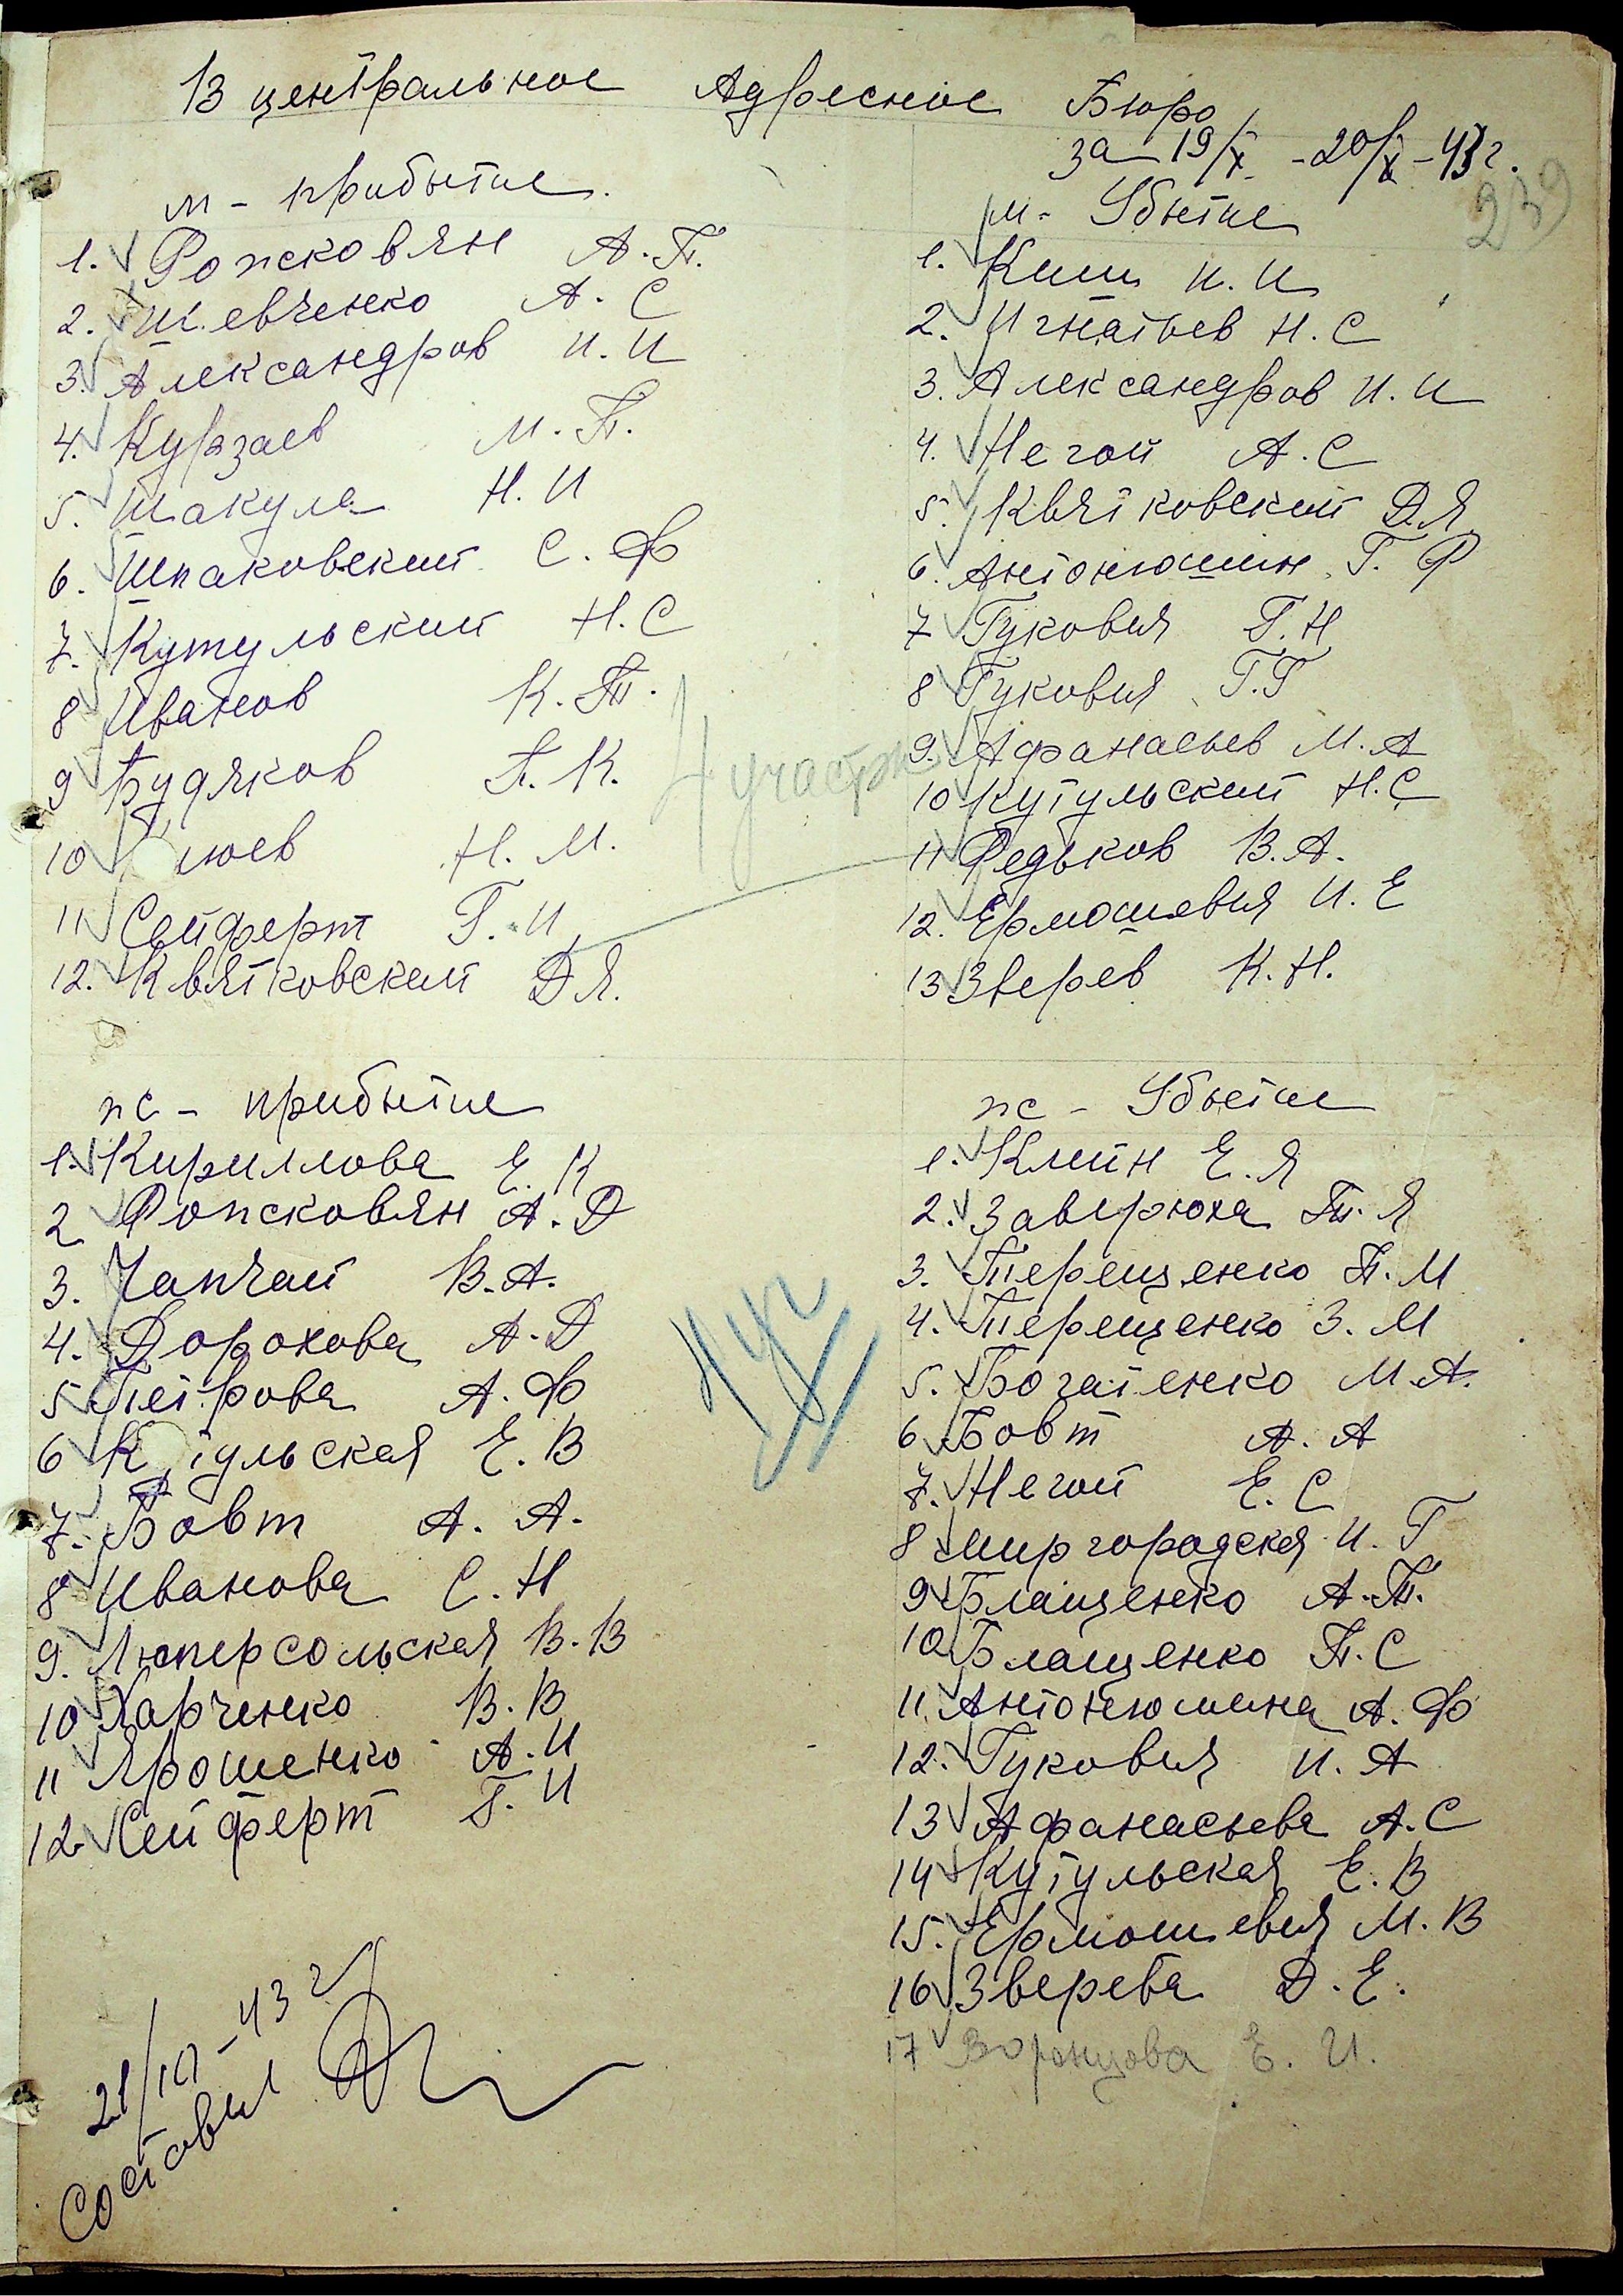 В центральное Адресное Бюро
за 19/X - 20/X - 43 г.
239
м - прибытие.
1. Рожсковян А.П.
2. Шевченко А.С
3. Александров И.И
4. Курзаев М.П.
5. Шакула Н.И
6. Шпаковский С.Ф
7. Кутульский Н.С
8 Иванов К.П.
9 Будяков П.К.
10 Н.М.
11 Сейферт Г.И
12. Квятковский Д.Я.
м - Убытие
1. Ким И.И
2. Игнатьев Н.С
3. Александров И.И
4. Негой А.С
5. Квятковский Д.Я
6. Антонюшин Г.Ф
7 Гукович Г.Н
8 Гукович Г.Г
9. Афанасьев М.А
10 Кутульский Н.С
11 Федьков В.А.
12. Ермошевич И.Е
13 Зверев К.Н.
4 участок
ж - прибытие
1. Кириллова Е.К
2 А.Д
3. Чапчай В.А.
4. Дорохова А.Д
5 Петрова А.Ф
6 Кутульская Е.В
7. Бовт А.А.
8 Иванова С.Н
9. В.В
10 Харченко В.В
11 Ярошенко А.И
12 Сейферт Г.И
ж - Убытие
1. Клейн Е.Я
2. Заверюха П.Я
3. Терещенко П.М
4. Терещенко З.М
5. Богатенко М.А.
6 Бовт А.А
7. Негой Е.С
8 Миргородская И.Г
9 Блащенко А.П.
10 Блащенко П.С
11 Антонюшина А.Ф
12. Гукович И.А
13 Афанасьева А.С
14 Кутульская Е.В
15. Ермошевич М.В
16 Зверева Д.Е.
17 Воронцова Е.И.
4 уч
21/10 - 43 г
Составил